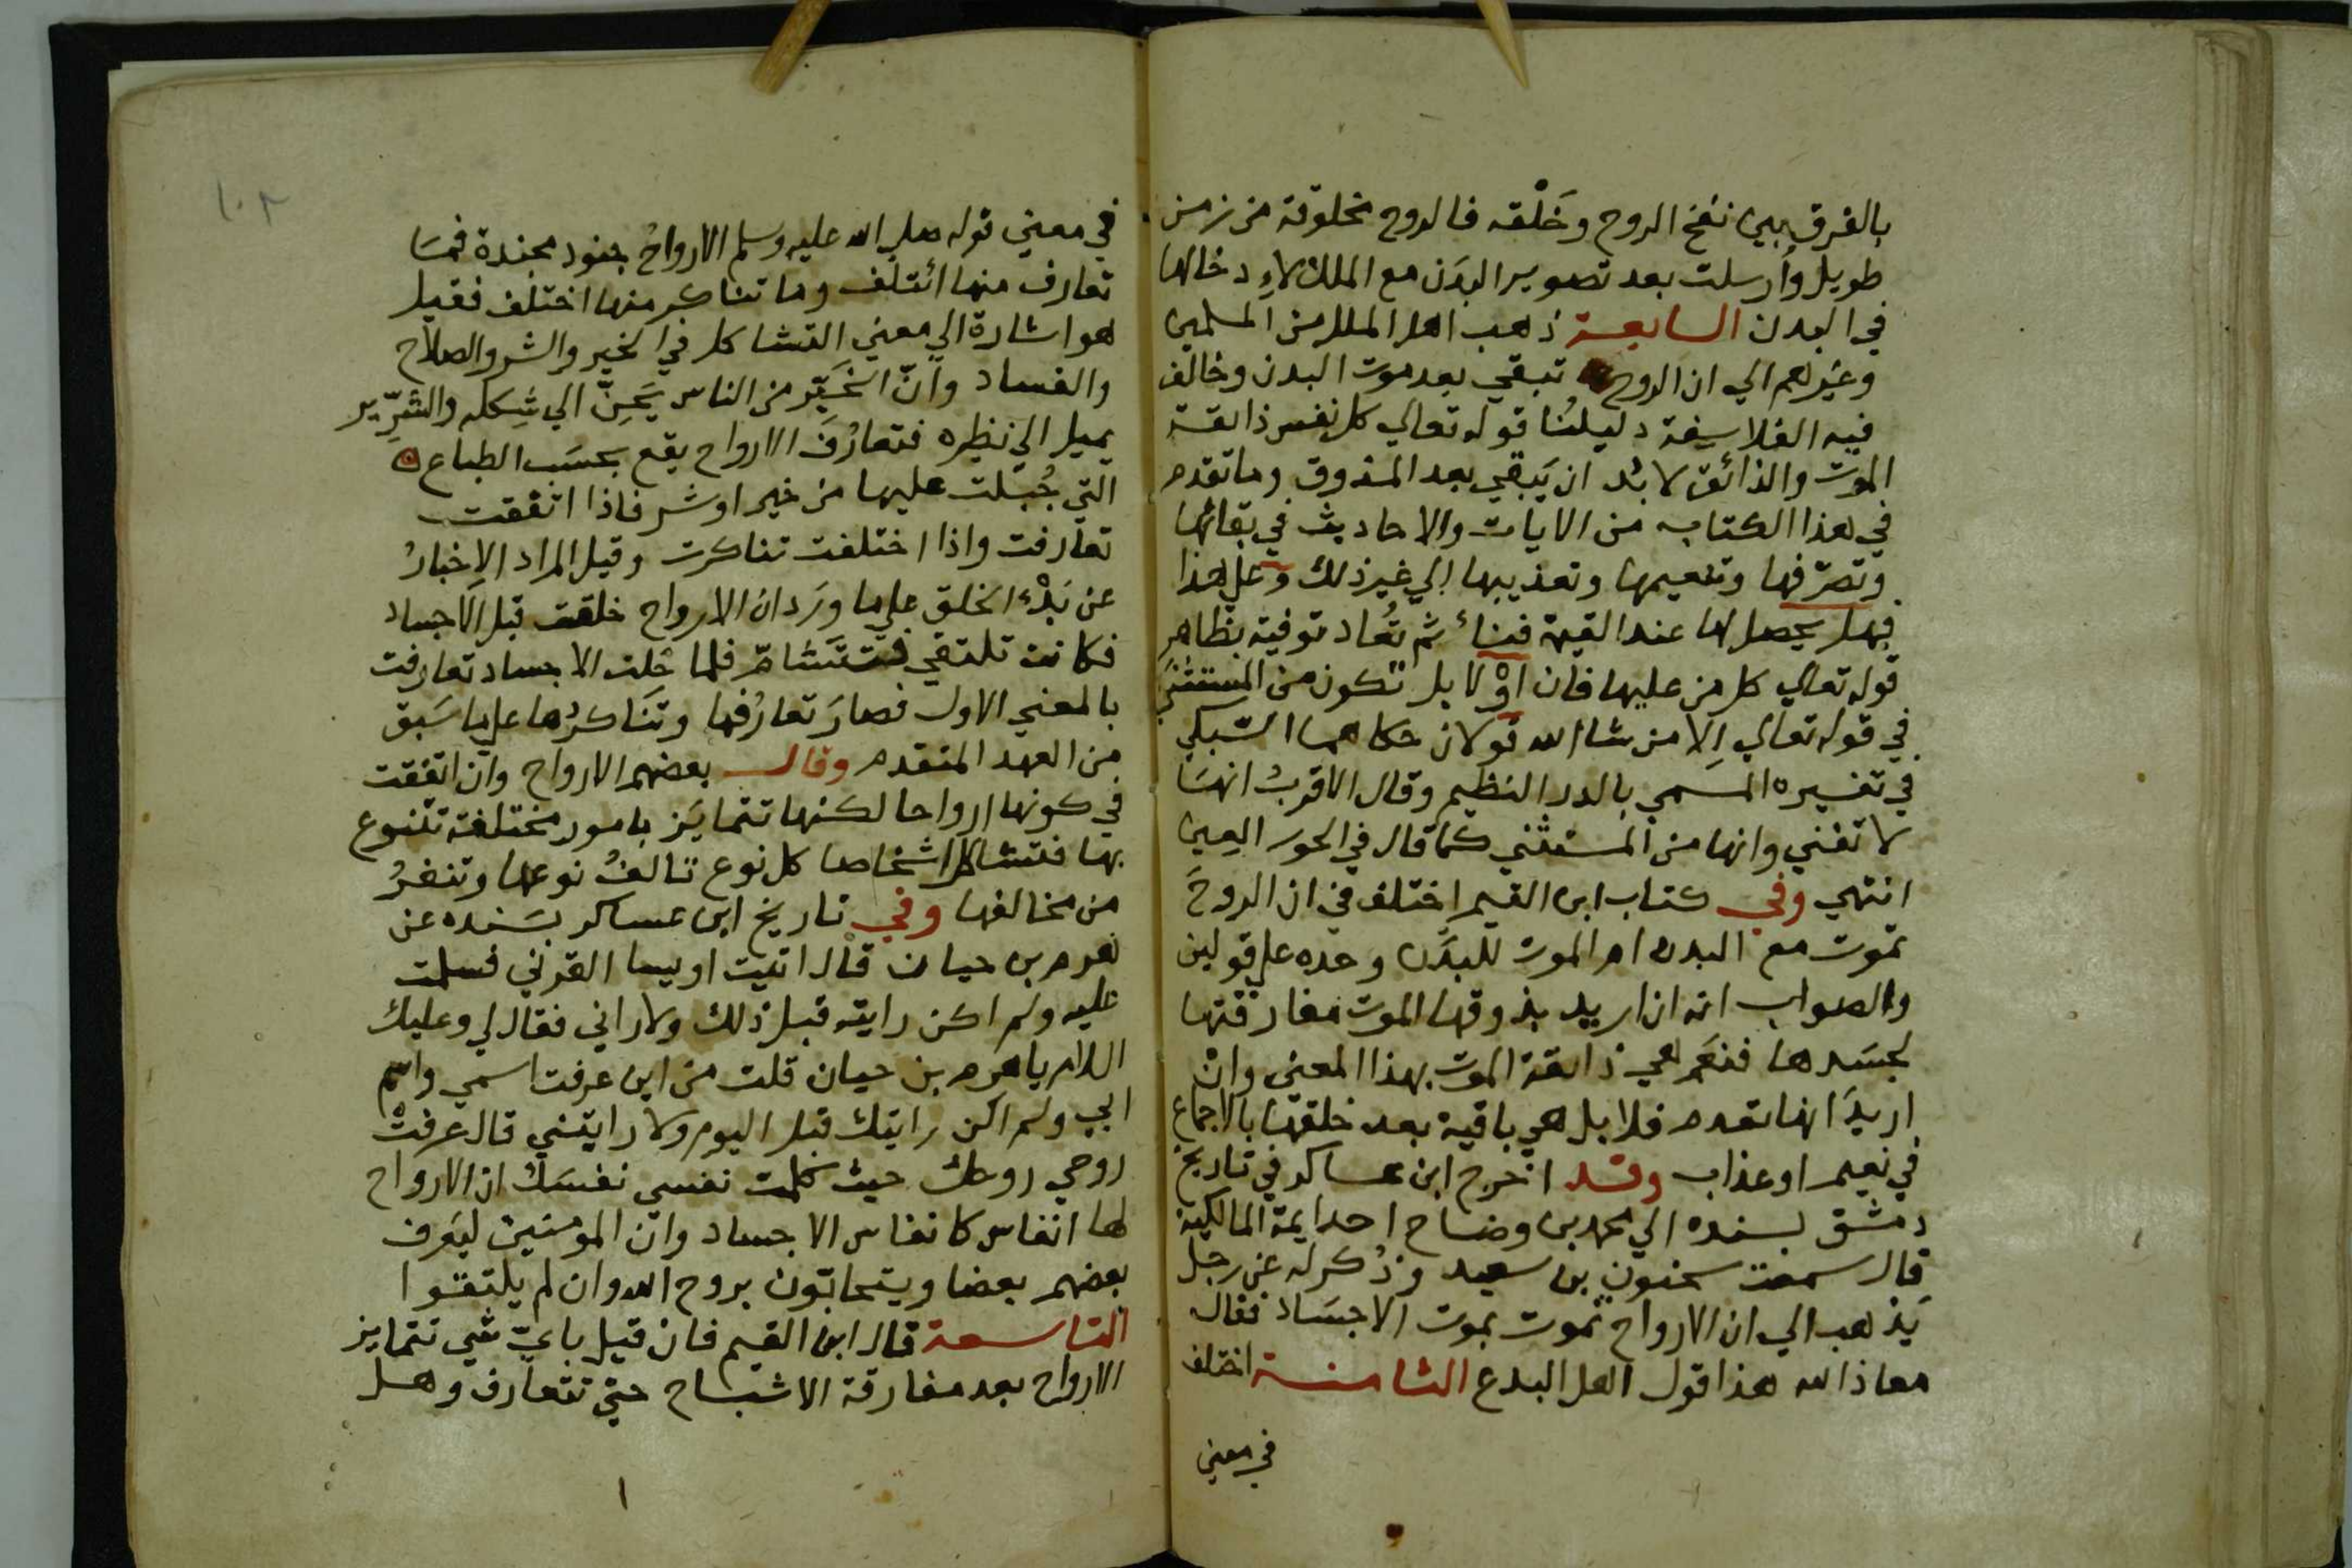 بالفرق بين نفخ الروح وخَلْقه فالروح مخلوقة من زمن
طويل وأرسلت بعد تصوير البدَن مع الملك لاِدخالها
في البدن السابعة ذهب اهل الملل من المسلمين
وغيرهم الي ان الروح تبقي بعد موت البدن وخالف
فيه الفلاسِفة دليلُنا قوله تعالي كل نفس ذايقة
الموت والذائق لا بُد ان يَبقي بعد المذوق وما تقدم
في هذا الكتاب من الايات والاحاديث في بقائها
وتصرّفها وتنعيمها وتعذيبها الي غير ذلك وعلي هذا
فهل يحصل لها عند القيمة فناءٌ ثم تُعاد توفية بظاهر
قوله تعالي كل من عليها فان اوْ لا بل تكون من المستثني
في قوله تعالي اِلا من شا الله قولان حكاهما السّبكي
في تفسيره المسَمي بالدر النظيم وقال الاقربُ انهَا
لا تفني وانها من المستثني كما قال في الحور العِين
انتهي وفي كتاب ابن القيم اختلف في ان الروحَ
تموت مع البدن ام الموت للبدَن وحده علي قولين
والصواب انه ان اريد بذوقها الموت مفارقتها
لجسَدها فنعَم هي ذايقة الموت بهذا المعني وانْ
اريدَ انها تعدم فلا بل هي باقية بعد خلقها بالاجماع
في نعيم او عذاب وقد اخرج ابن عساكر في تاريخ
دمشق بسنده الي محمد بن وضاح احد ايمة المالكية
قال سمعت سحنون بن سعيد وذُكر له عن رجل
يَذهب الي ان الارواح تموت بموت الاجسَاد فقال
معاذ الله هذا قول اهل البدع الثامنة اختلف
في معني
١٠٢
في معني قوله صلي الله عليه وسلم الارواحُ جنود مجندة فمَا
تعارف منها ائتلف وما تناكر منها اختلف فقيل
هو اشارة الي معني التشاكل في الخير والشر والصلاح
والفساد وانّ الخَيّر من الناس يَحِنّ الي شِكله والشرِّير
يميل الي نظيره فتعارُف الارواح يقع بحسَب الطباع
التي جُبلت عليها من خير او شر فاذا اتفقت
تعارفت واذا اختلفت تناكرت وقيل المراد الاِخبارُ
عن بَدْء الخلق علي ما ورَد ان الارواح خلقت قبل الاجساد
فكانت تلتقي فتتشامّ فلما حَلت الاجساد تعارفت
بالمعني الاول فصارَ تعارُفها وتنَاكرُها علي ما سَبق
من العهد المتقدم وقال بعضهم الارواح وان اتفقت
في كونها ارواحا لكنها تتمايَز بامور مختلفة تتنوع
بها فتتشاكل اشخاصا كل نوع تالفُ نوعها وتنفرُ
من مخالفها وفي تاريخ ابن عساكر بسَنده عن
هرم بن حيان قال اتيت اويسا القرني فسلمت
عليه ولم اكن رايته قبل ذلك ولا راني فقال لي وعليك
اللام يا هرم بن حيان قلت من اين عرفت اسمي واسم
ابي ولم اكن رايتك قبل اليوم ولا رايتني قال عرفتْ
روحي روحك حيث كلمت نفسي نفسَك ان الارواح
لها انفاس كانفاس الاجساد وان المومنين ليَعرف
بعضهم بعضا ويتحابّون بروح الله وان لم يلتقوا
التاسعة قال ابن القيم فان قيل باي شي تتمايز
الارواح بعد مفارقة الاشباح حتي تتعارف وهل